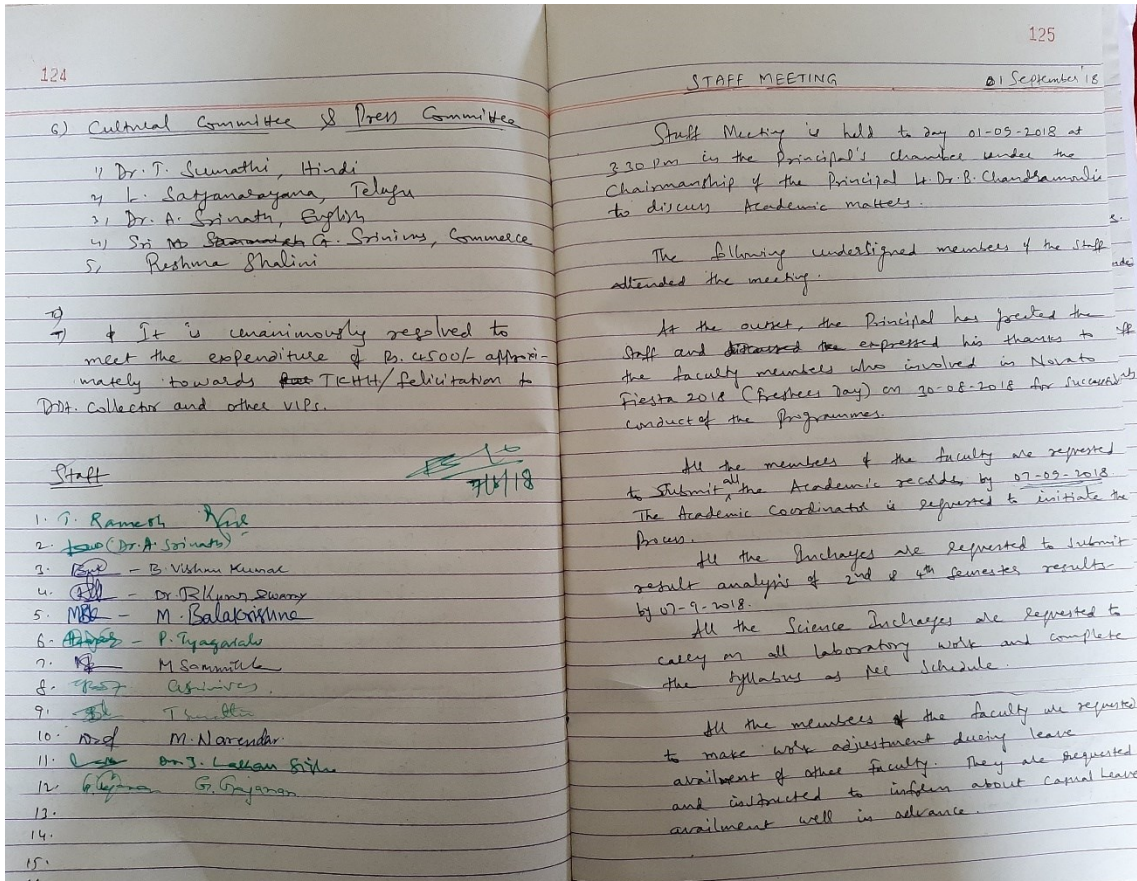 124
6) Cultural Committee & Press Committee
1) Dr. T. Sumathi, Hindi
2) L. Satyanarayana, Telugu
3) Dr. A. Srinath, English
4) Sri G. Srinivas, Commerce
5, Reshma Shalini
7) It is unanimously resolved to
meet the expenditure of Rs. 4500/- approxi-
mately towards TKHH/felicitation to
Collector and other VIPs.
Staff
1. T. Ramesh
2. (Dr. A. Srinath)
3. - B. Vishnu Kumar
4. - Dr. Swamy
5. - M. Balakrishna
6. - P. Tyagaralu
7. M
8.
9. T
10. M. Narendar.
11. Dr. J.
12 G. Gajanan
13.
14.
15.
125
STAFF MEETING 01 September '18
Staff Meeting is held to day 01-09-2018 at
3.30 pm in the Principal's chamber under the
Chairmanship of the Principal Lt. Dr. B. Chandramouli
to discuss Academic matters.
The following undersigned members of the staff
attended the meeting.
At the outset, the Principal has greeted the
Staff and expressed his thanks to
the faculty members who involved in Novato
Fiesta 2018 (Freshers Day) on 30-08-2018 for successful
conduct of the Programmes.
All the members of the faculty are requested
to submit all the Academic records by 07-09-2018
The Academic Coordinator is requested to initiate the
Process.
All the Incharges are requested to submit
result analysis of 2nd & 4th Semester results
by 07-9-2018.
All the Science Incharges are requested to
carry on all laboratory work and complete
the syllabus as per schedule.
All the members of the faculty are requested
to make work adjustment during leave
availment of other faculty. They are requested
and instructed to inform about Casual Leave
availment well in advance.